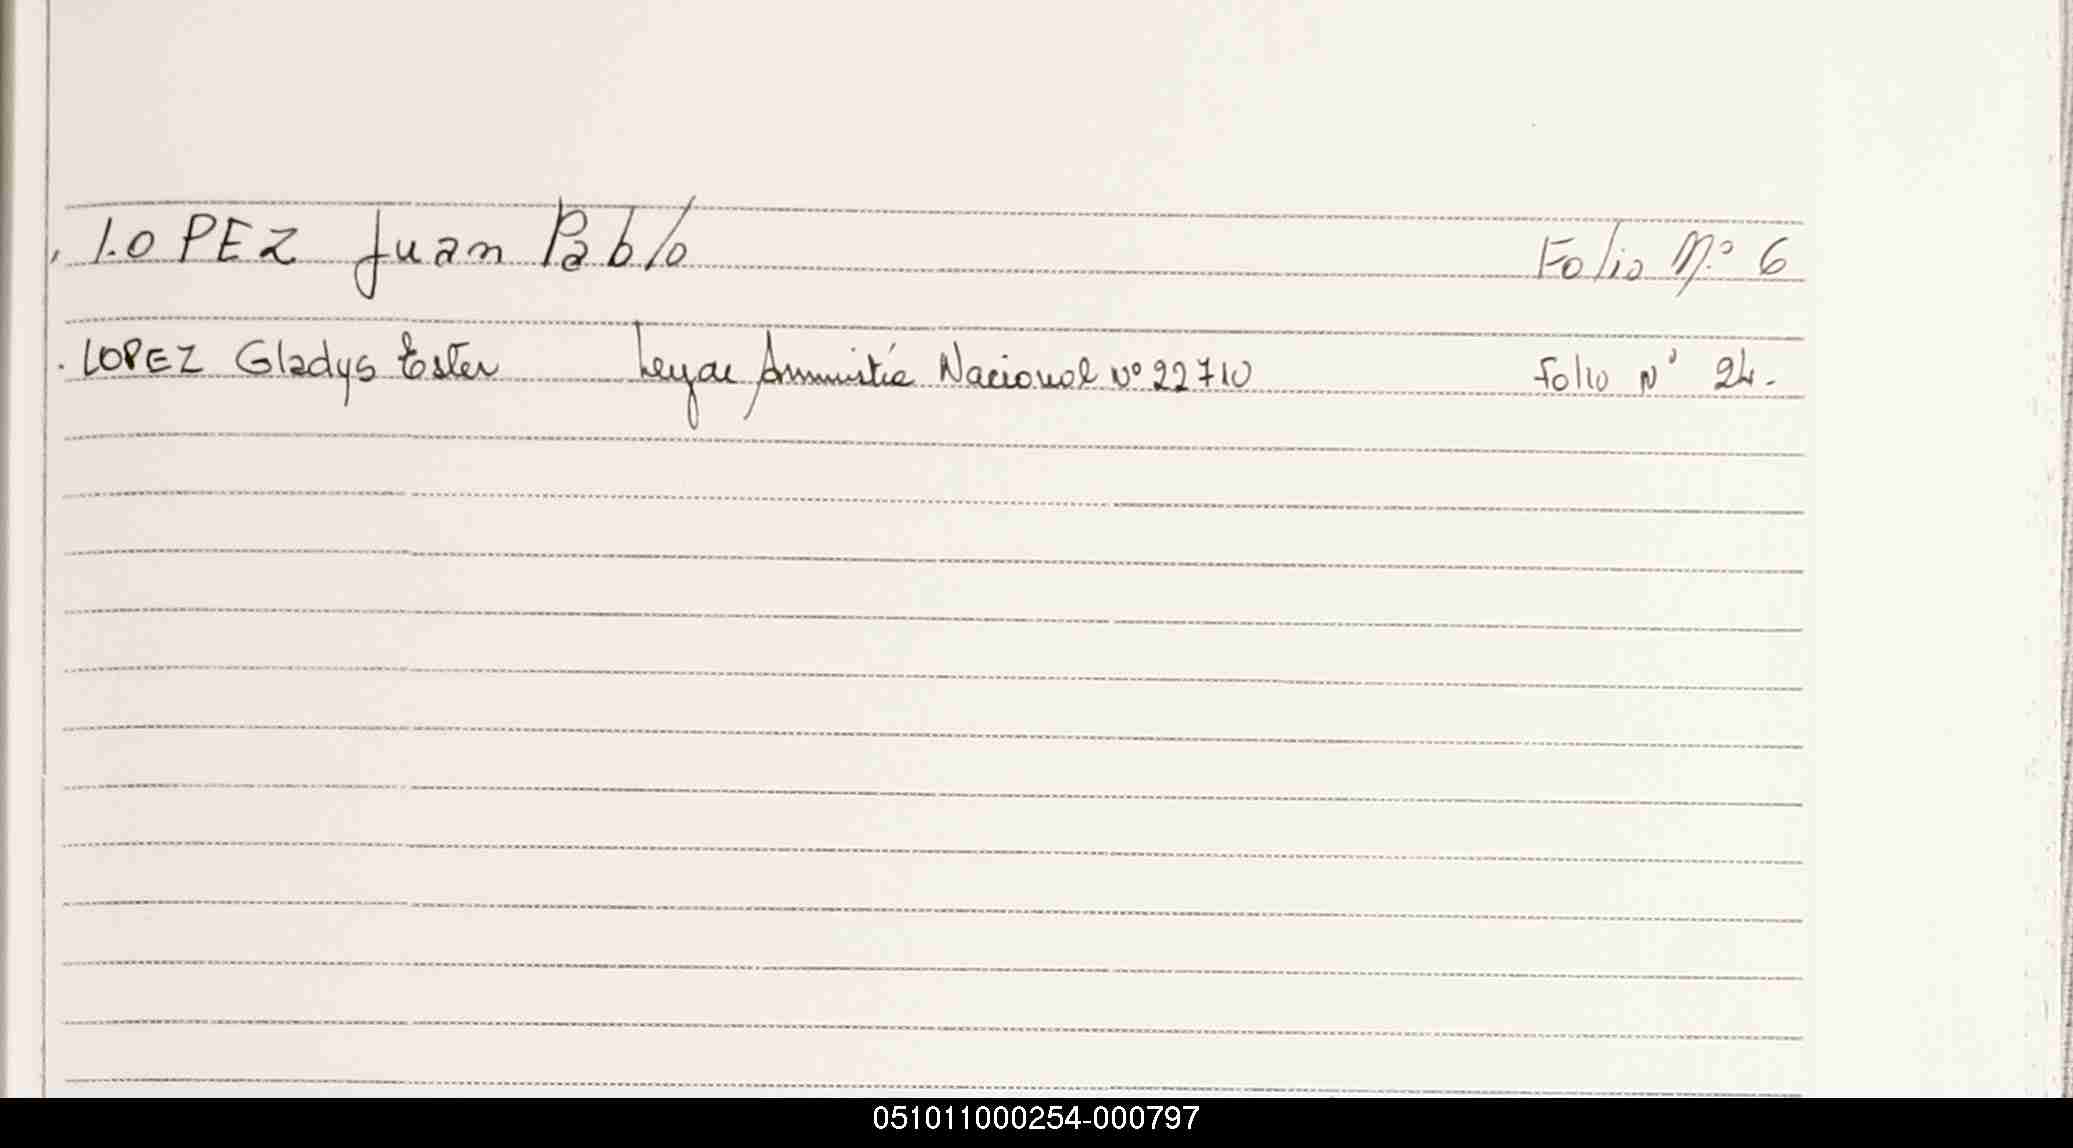 . LOPEZ Juan Pablo Folio Nº 6
. LOPEZ Gladys Ester Ley de Amnistía Nacional Nº 22710 Folio Nº 24.
051011000254-000797